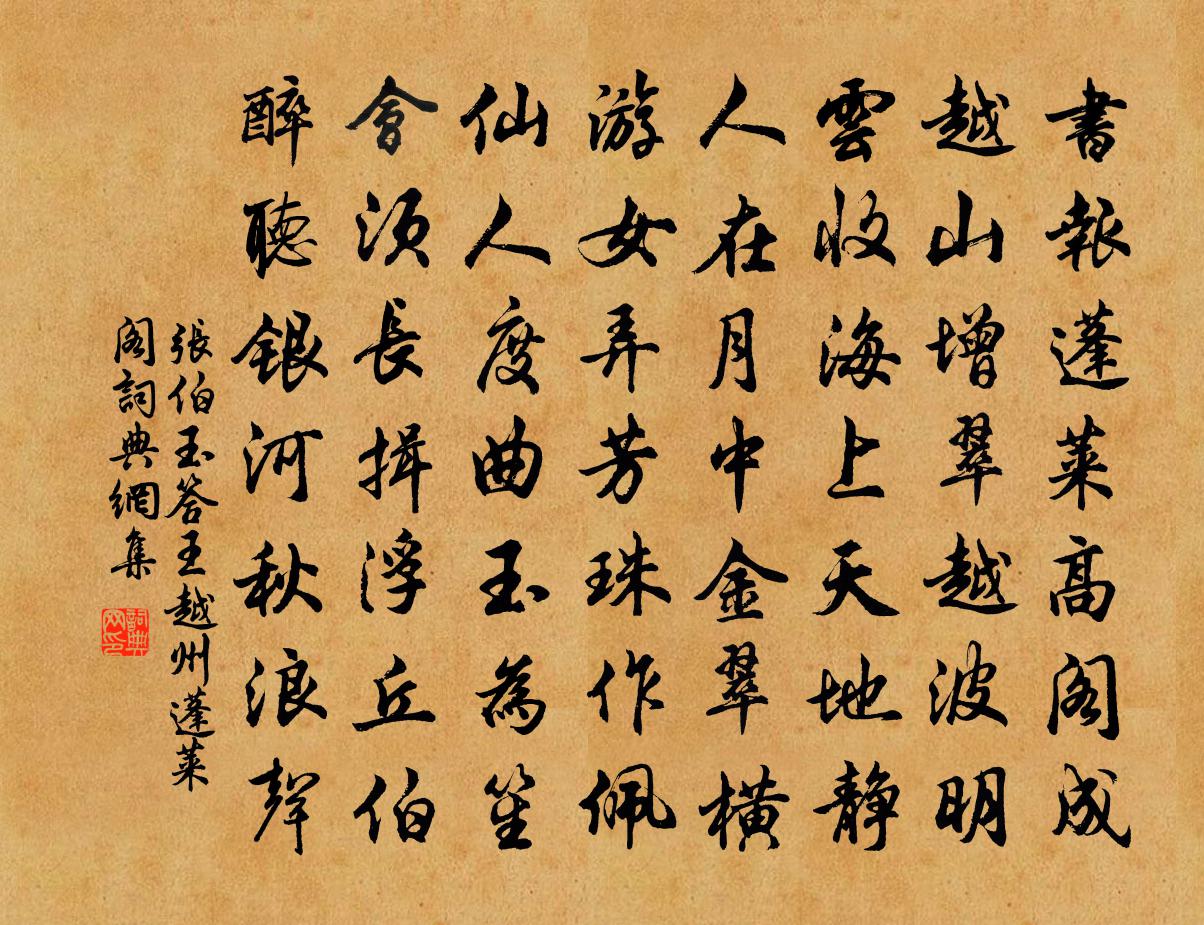 書報蓬萊高閣成
越山增翠越波明
雲收海上天地靜
人在月中金翠橫
游女弄芳珠作佩
仙人度曲玉為笙
會須長揖浮丘伯
醉聽銀河秋浪聲
張伯玉答王越州蓬萊
閣詞典網集
詞典网印